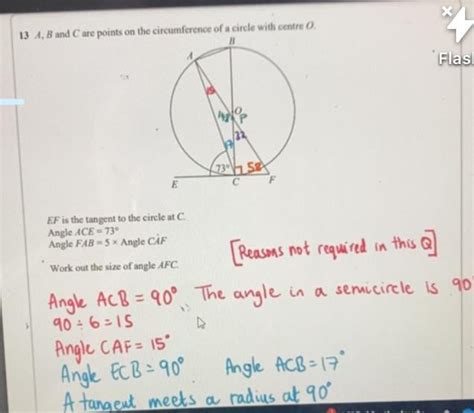 Flas
13 A, B and C are points on the circumference of a circle with centre O.
B
A
O
73°
58
E
C
F
EF is the tangent to the circle at C.
Angle ACE = 73°
Angle FAB = 5 × Angle CAF
Work out the size of angle AFC.
[Reasons not required in this Q]
Angle ACB = 90° The angle in a semicircle is 90
90 ÷ 6 = 15
Angle CAF = 15°
Angle ECB = 90° Angle ACB = 17°
A tangent meets a radius at 90°